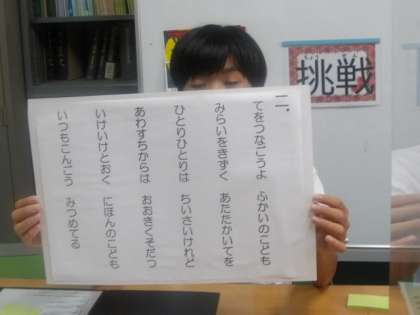 挑戦
二.
てをつなごうよ　ふかいのこども
みらいをきずく　あたたかいてを
ひとりひとりは　ちいさいけれど
あわすちからは　おおきくそだつ
いけいけとおく　にほんのこども
いつもこんごう　みつめてる